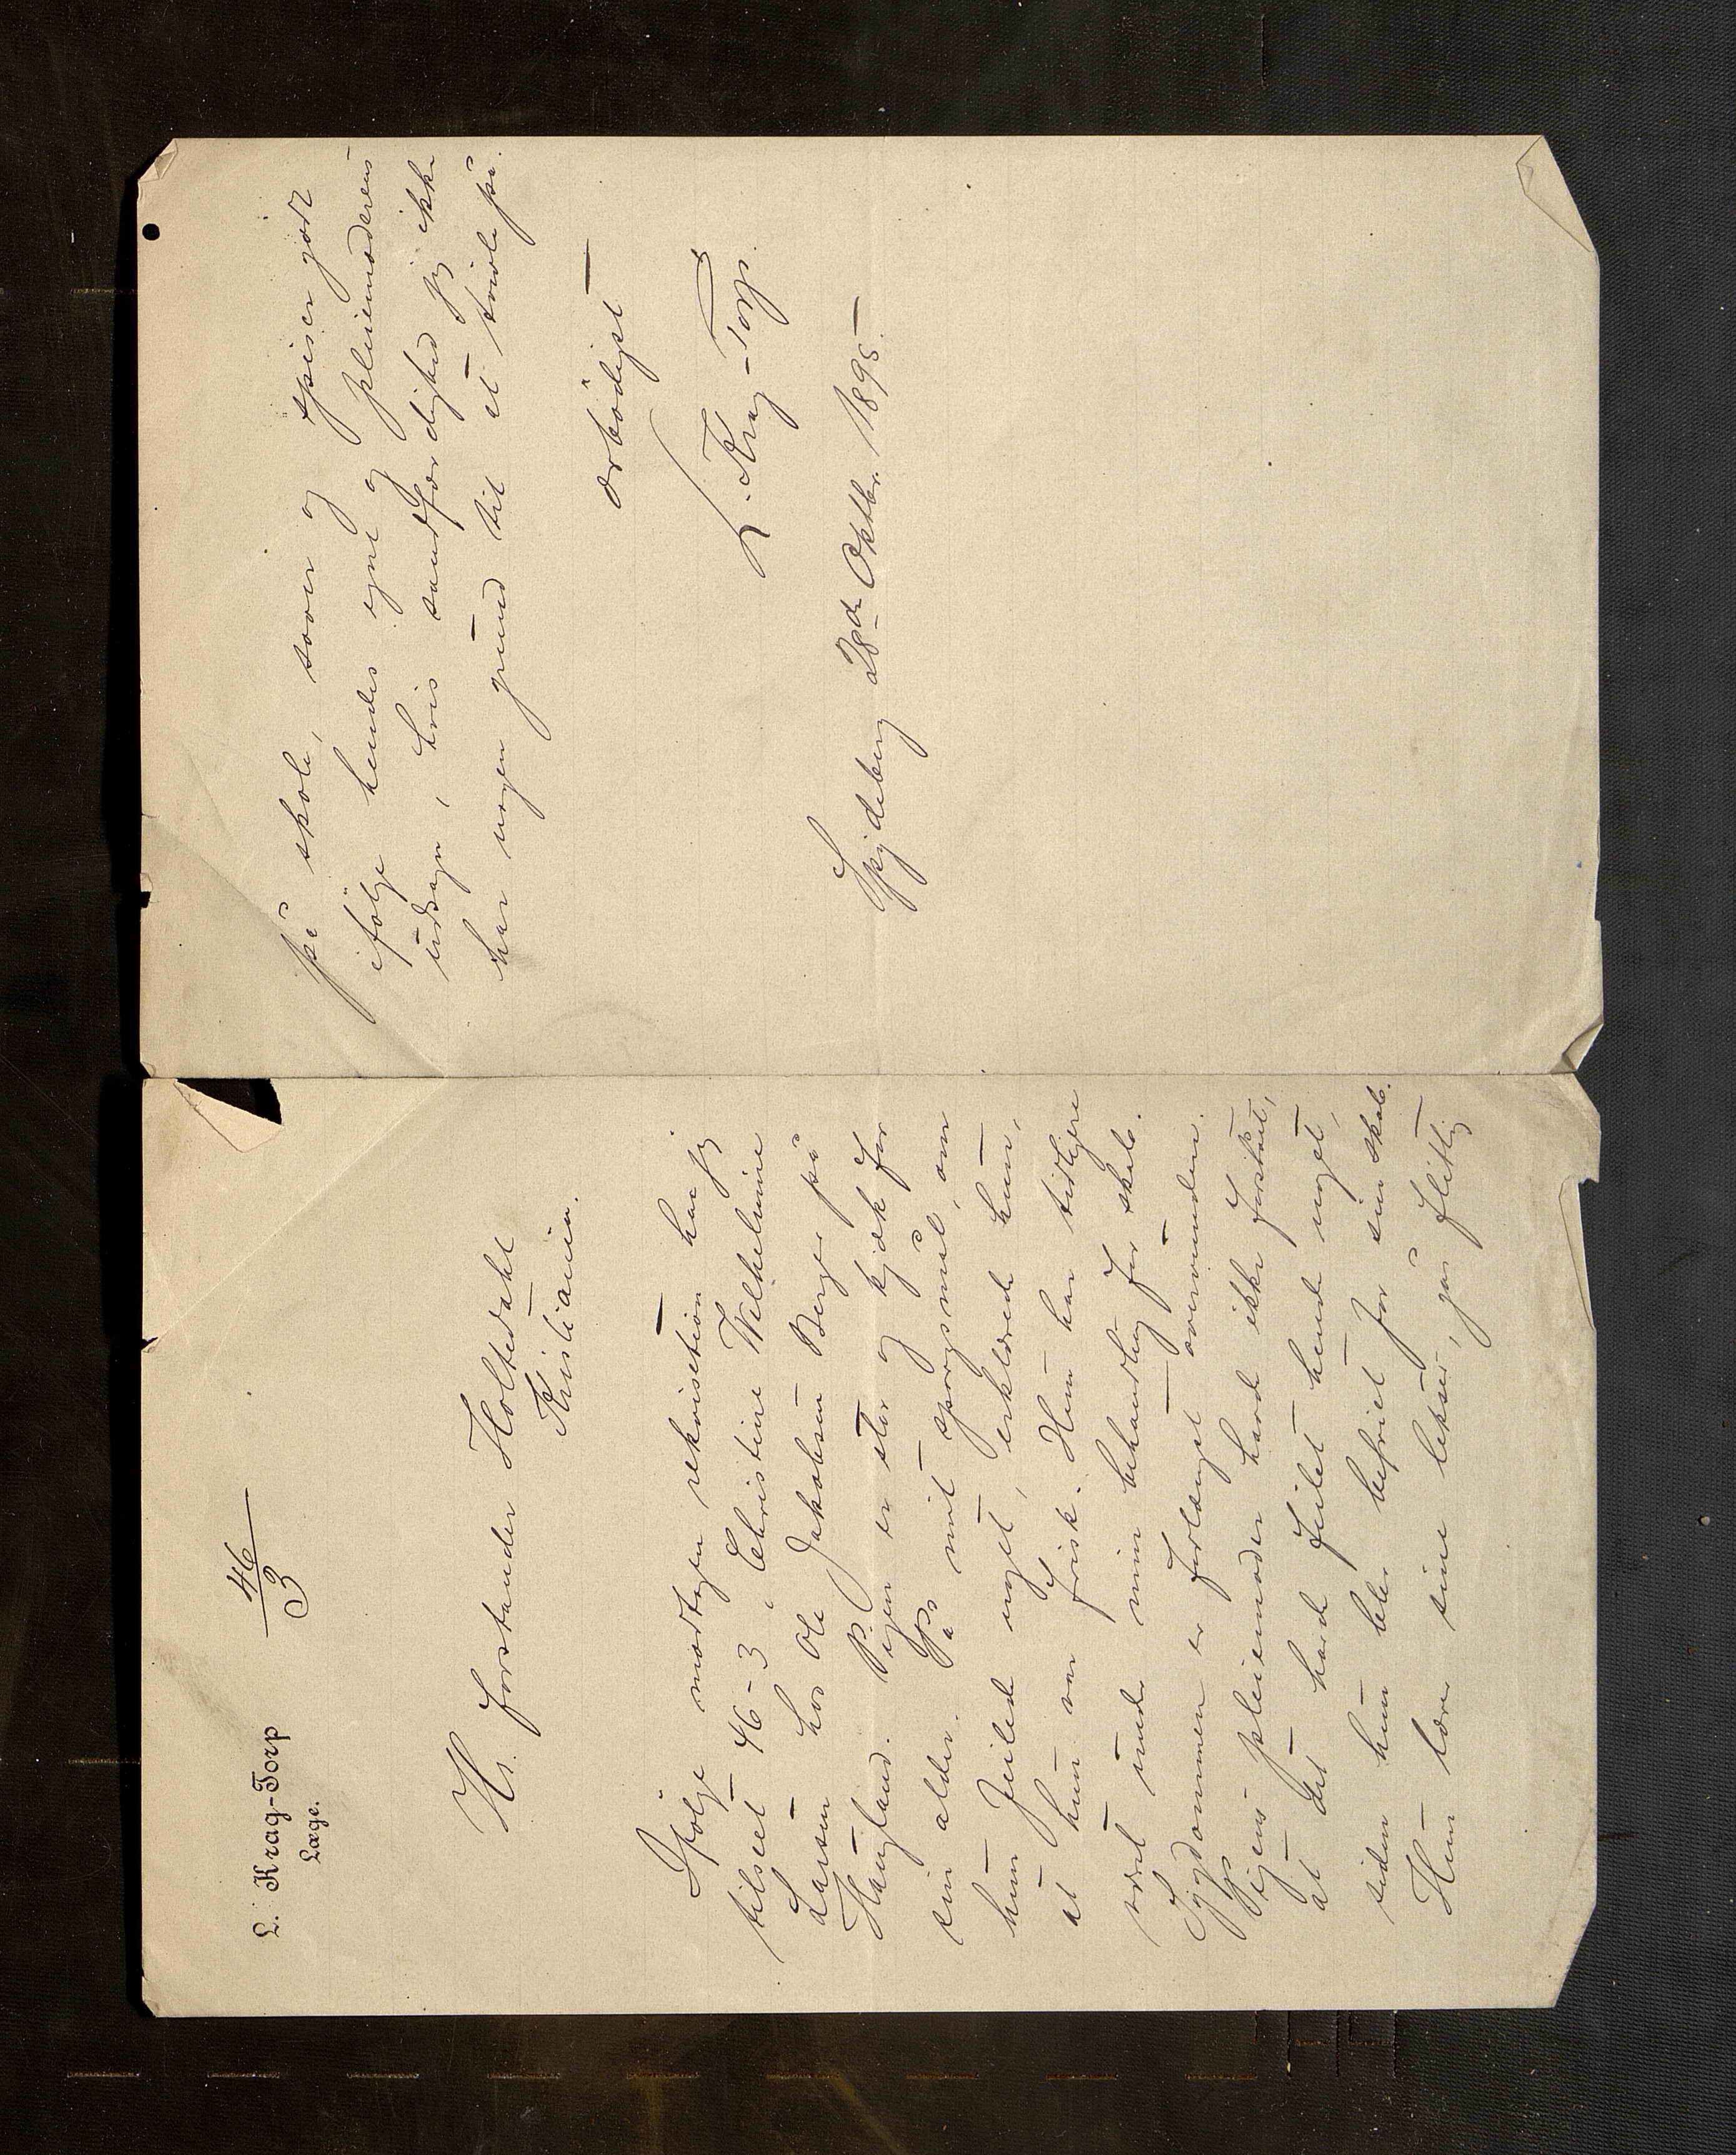 L. Krag-Torp
Læge.
46
3
Hr. forstander Holtedahl
Kristiania.
Ifølge modtagen rekvisition har jeg
tilseet 46-3, Christine Wilhelmine
Larsen hos Ole Jakobsen Berger på
Haugland. Pigen er stor og kjæk for
sin alder. På mit spørgsmål, om
hun feilede noget, erklærede hun,
at hun var frisk. Hun har tidligere
været under min behandling for skab.
Sygdommen er forlængst overvunden.
Pigens pleiemoder havde ikke forstået,
at det havde feilet hende noget,
siden hun blev befriet for sin skab.
Hun lærer sine lekser, går flittig
på skole, sover og spiser godt
ifølge hendes egne og pleiemoderens
udsagn, hvis sandfærdighed jeg ikke
har nogen grund til at tvivle på.
ærbødigst
L. Krag-Torp.
Spydeberg 28de Oktbr. 1895.